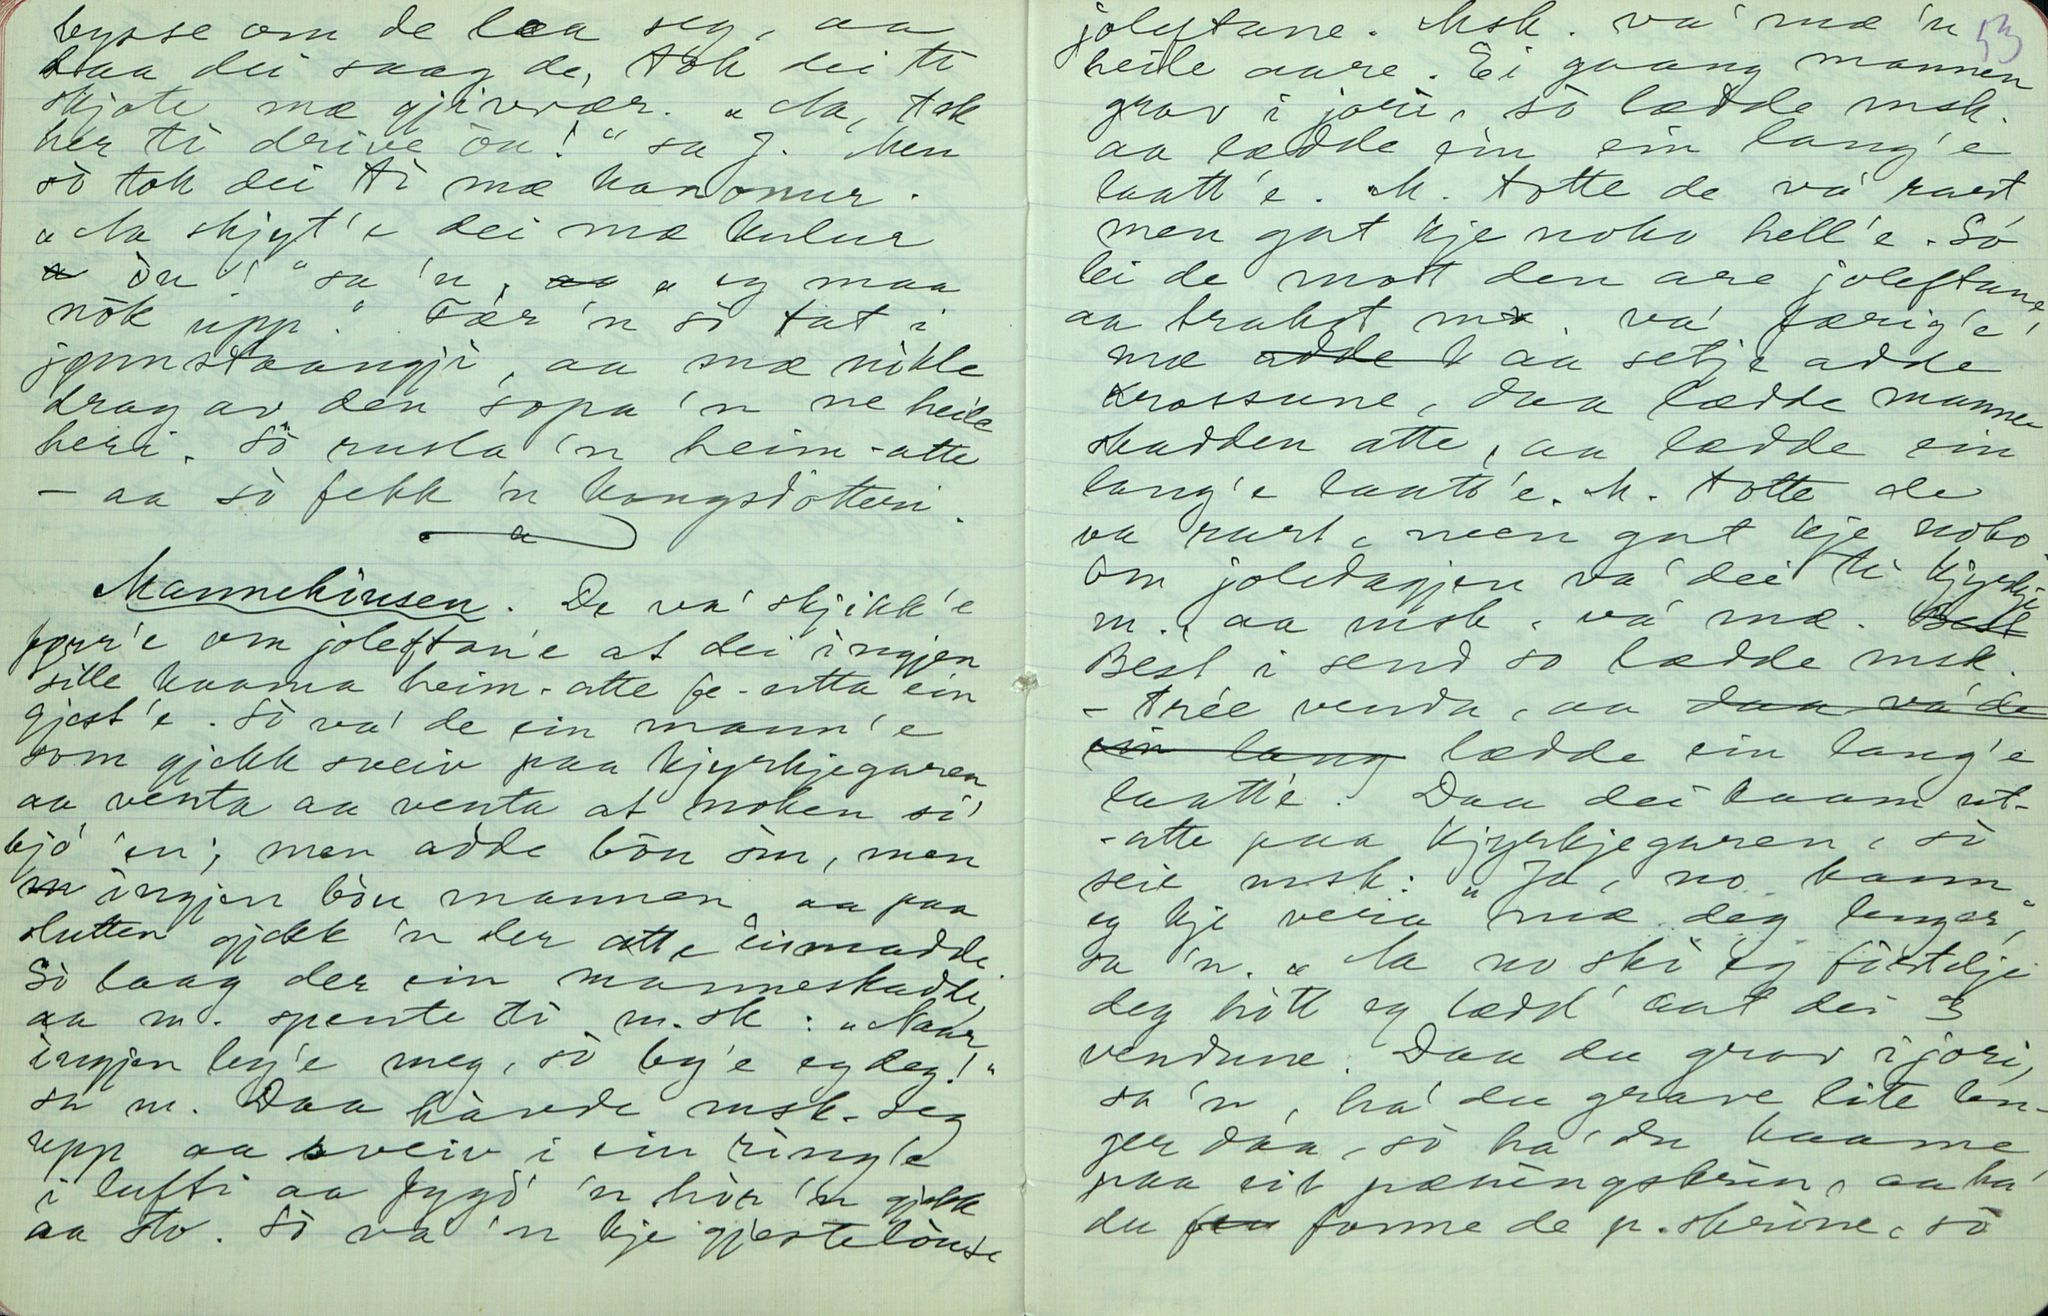 bysse om de laa seg, aa
daa dei saag de, tok dei ti
skjote mæ gjivvær. „Aa, tek
her ti drive òn!“ sa J. Men
sò tok dei ti mæ kanonur.
„Aa skjyt'e dei mæ kulur
òn!“ sa'n, „eg maa
nòk upp.“ Fær'n sò tat i
jønnstaangji, aa mæ nikle
drag av den sopa'n ne heile
heri. Sò rusla'n heim-atte
– aa sò fekk'n kongsdotteri.
Mannehùusen. De va' skjikk'e
fyrr'e om joleftan'e at dei ingjen
sille kaama heim-atte fe-utta ein
gjest'e. Sò va' de ein mann'e
som gjekk sveiv paa kjyrkjegaren
aa venta aa venta at noken si'
bjo' 'en; men adde bòu sin, men
ingjen bòu mannen aa paa
slutten gjekk'n der atte eismadde.
Sò laag der ein manneskadde,
aa m. spente ti m.sk: „Naar
ingjen by'e meg, sò by'e eg deg!“
sa m. Daa hævde msk. seg
upp aa sveiv i ein ring'e
i lufti aa fygd' 'n hòr'n gjekk
aa sto. Sò va'n kje gjestelòuse
joleftane. Msk. va' mæ'n 53
heile aare. Ei gaang mannen
grov i jori, sò lædde msk.
aa lædde ein ein lang'e
laatt'e. M. totte de va' rart
men gat kje noko hell'e. Sò
lei de mott den are joleftane
aa brakst m. va' færig'e
mæ aa setje adde
krossune, daa lædde manne-
skadden atte, aa lædde ein
lang'e laatt'e. M. totte de
va rart, men gat kje noko.
Om joledagjen va' dei ti kjyrkje
m., aa msk. va' mæ.
Best i send so lædde msk.
– trée venda, aa
lædde ein lang'e
laatt'e. Daa dei kaam ut-
-atte paa kjyrkjegaren, sò
seie msk: „Ja, no kann
eg kje vera mæ deg lenger,“
sa'n. „Aa no ski eg fòrtelje
deg hòtt eg lædd' aat dei 3
vendune. Daa du grov i jori,
sa'n, ha' du grave lite len-
ger daa, sò ha' du kaame
paa eit pæningskrin, aa ha'
du fonne de p.skrine, sò